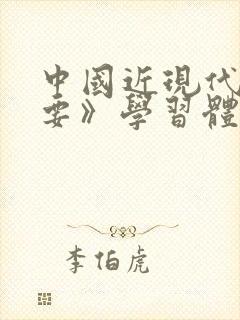 中國近現代
要》學習體
李伯虎